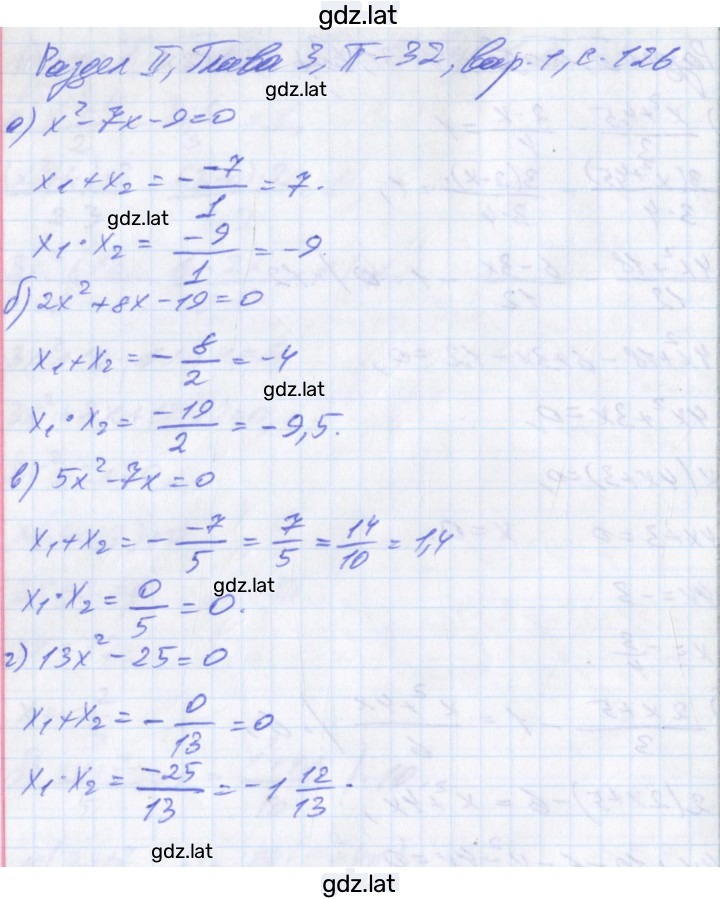 gdz.latt
Раздел II, Глава 3, П-32, вар.1, с.126
gdz.lat
а) x²-7x-9=0
x₁+x₂ = - -7/1 = 7.
gdz.lat
x₁·x₂ = -9/1 = -9.
б) 2x²+8x-19=0
x₁+x₂ = - 8/2 = -4
gdz.lat
x₁·x₂ = -19/2 = -9,5.
в) 5x²-7x=0
x₁+x₂ = - -7/5 = 7/5 = 14/10 = 1,4
gdz.lat
x₁·x₂ = 0/5 = 0.
г) 13x²-25=0
x₁+x₂ = - 0/13 = 0
x₁·x₂ = -25/13 = -1 12/13.
gdz.lat
gdz.lat